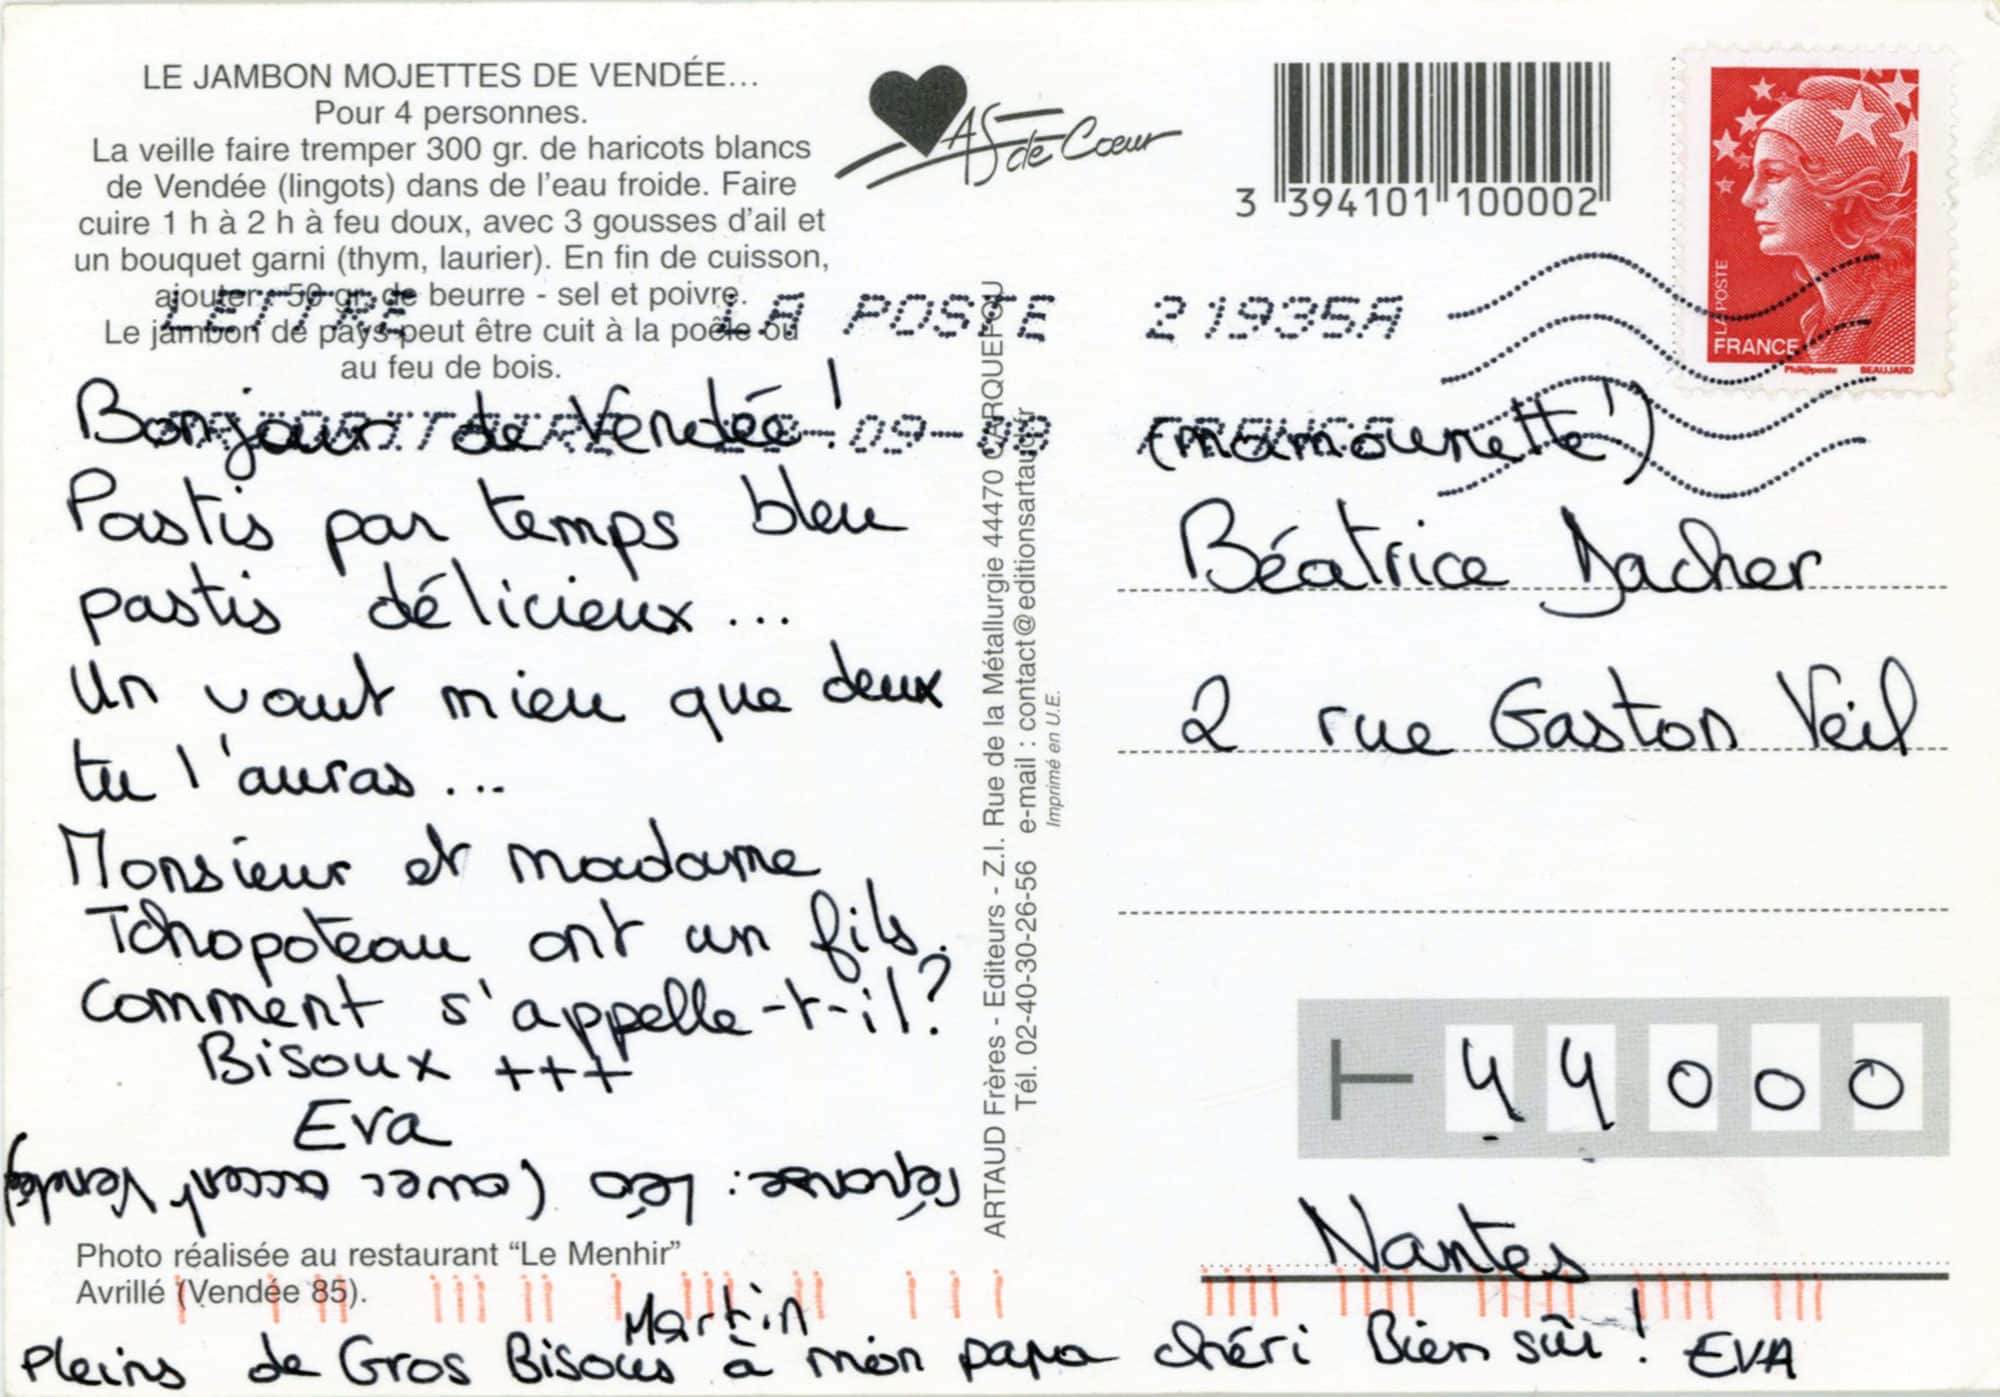 LE JAMBON MOJETTES DE VENDÉE...
Pour 4 personnes.
La veille faire tremper 300 gr. de haricots blancs
de Vendée (lingots) dans de l'eau froide. Faire
cuire 1 h à 2 h à feu doux, avec 3 gousses d'ail et
un bouquet garni (thym, laurier). En fin de cuisson,
ajouter : 50 gr. de beurre - sel et poivre.
Le jambon de pays peut être cuit à la poêle ou
au feu de bois.
AS de Coeur
3 394101 100002
LA POSTE
FRANCE
Phil@poste BEAUJARD
LETTRE LA POSTE 21935A
PRIORITAIRE -09-09 FRANCE
Bonjour de Vendée !
Pastis par temps bleu
pastis délicieux ...
Un vaut mieu que deux
tu l'auras ...
Monsieur et madame
Tchopoteau ont un fils.
Comment s'appelle-t-il ?
Bisoux +++
Eva
réponse : Léo (avec accent Vendéen)
Photo réalisée au restaurant “Le Menhir”
Avrillé (Vendée 85).
Martin
Pleins de Gros Bisous à mon papa chéri Bien sûr ! EVA
ARTAUD Frères - Editeurs - Z.I. Rue de la Métallurgie 44470 CARQUEFOU
Tél. 02-40-30-26-56 e-mail : contact@editionsartaud.fr
Imprimé en U.E.
(mamounette !)
Béatrice Dacher
2 rue Gaston Veil
44000
Nantes